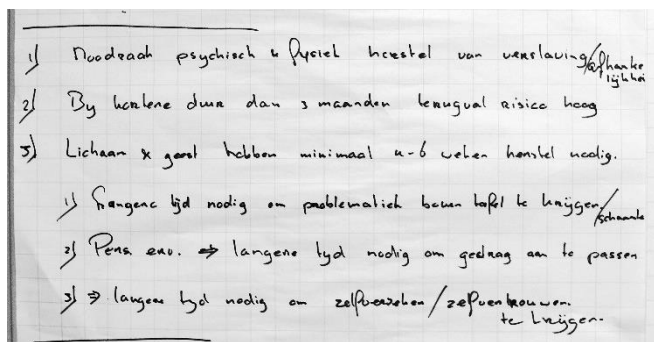 1) Noodzaak psychisch & fysiek herstel van verslaving/afhanke
lijkhei
2) By kortere duur dan 3 maanden terugval risico hoog
3) Lichaam & geest hebben minimaal 4-6 weken herstel nodig.
1) Langere tijd nodig om problematiek boven tafel te krijgen/
schaamte
2) Pers. ⇒ langere tyd nodig om gedrag aan te passen
3) ⇒ langere tyd nodig om zelfvertrouwen.
te krijgen.